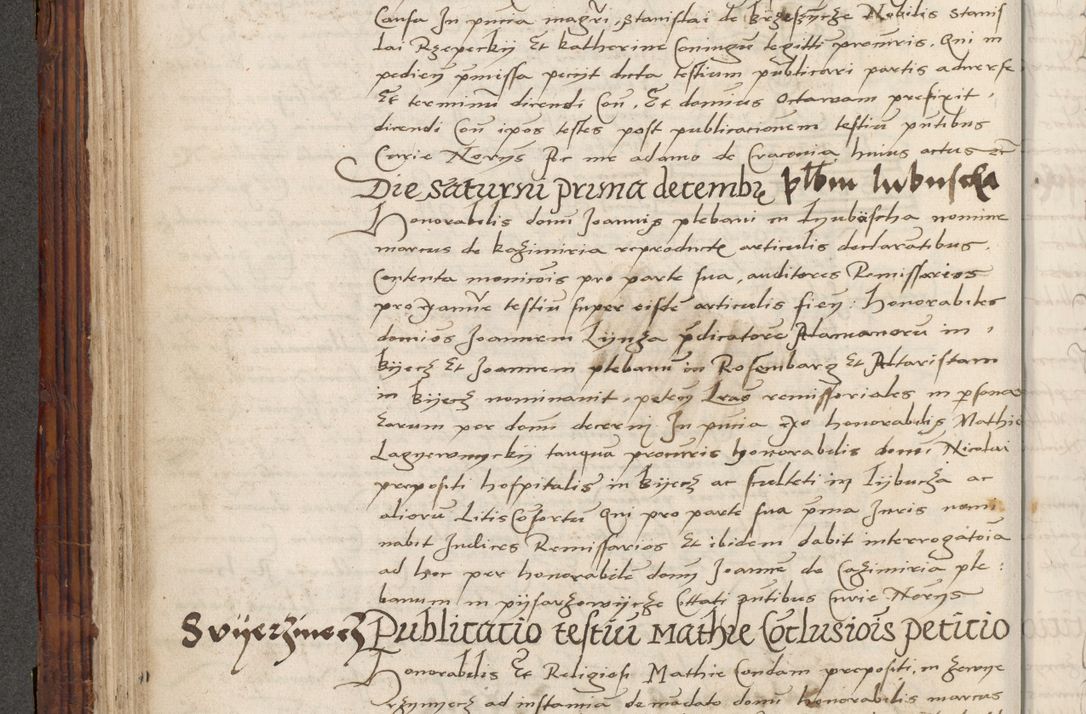 Causa In pn̄cia magr̄i Stanislai de Brzeszycze Nobilis Stanis
lai Rzepeckij Et katherine Coningū legitti procuris. Qui in
pedicij p̄missa pecijt dicta testium pūblicari partis aduerse
Et terminū dicendi Con̄. Et domīus Octauam prefixit.
dicendi Con̄ ip̄os testes post publicacionem testiū pn̄tibus
Curie Norijs Ac me adamo de Cracouia huius actus
Die saturnī prima decembrę plb̄m lubuscha
Honorabilis domī Joannis plebani in Lyubuscha nomine
marcus de kazimiria reproductę articulis declarātibus.
Contenta moniciois pro parte sua, auditores Remissorios
pro testiū super eisdē articulis fieŋ: honorabiles
domīos Joannem p̄dicatorē Alamanorū in
Bijecz Et Joannem plebanū in Rosembarg Et Altaristam
in Bijecz nominauit, petcŋ Lr̄as remissoriales in psonas
earum per domī decerni In pn̄cia honorabilis Mathie
Lagyewnyckij tanqua procuris honorabilis domī Nicolai
prepositi hospitalis in Bijecz ac sculteti in lijbucza ac
aliorū Litis Cōsortū Qui pro parte sua p̄ma Juris nomi
nabit Judices Remissarios Et ibidem dabit interrogatoia
ad hoc per honorabile domī Joannē de Cazimiria ple:
banum in pijsarzowijcze Cittati pn̄tibus Curie Norijs
Svijerzinecz Publicatio testiū Mathie Cōclusiois peticio
Honorabilis Et Religiosi Mathie Condam prepositi, in zwije
rzynyecz ad instantiā de mandato domī honorabilis marcus